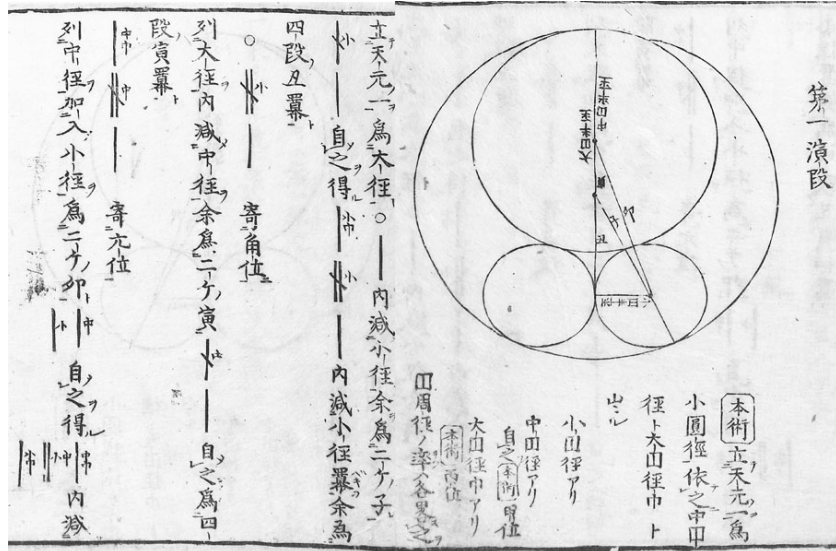 第一演段
本術 立天元一為
小圓徑依之中円
徑ト大円徑巾ト
出ル
小円徑アリ
中円徑アリ
自之 本術 甲位
大円徑巾アリ
本術
円周徑ノ率ハ各畧之
立天元一為大徑 ○ 内減小徑余為二ケノ子
小 自之得 小巾 小 内減小徑羃余為
四段丑羃
○ 小 寄角位
列大徑内減中徑余為二ケノ寅 中 自之為四
段寅羃
中巾 中 寄亢位
列中徑加入小徑為二ケノ卯 中 小 自之得 中巾 中小 小巾 内減